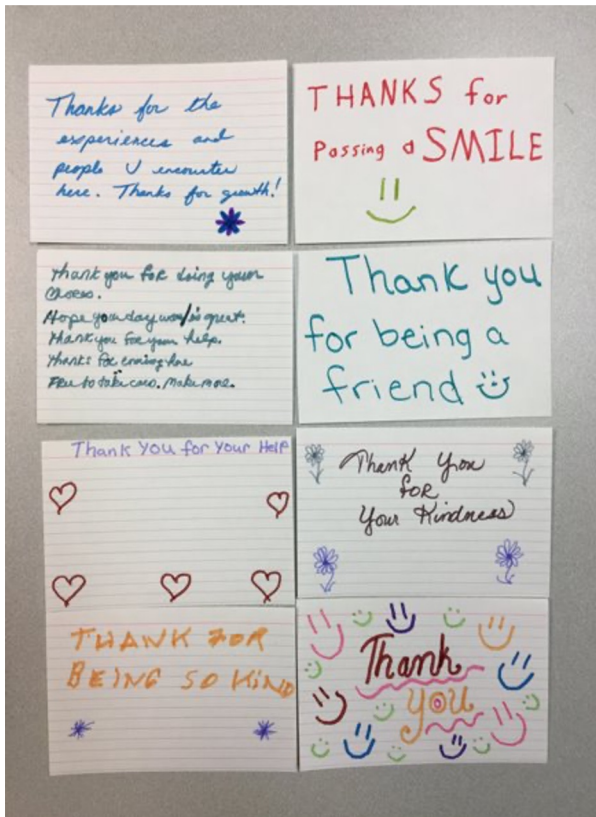 Thanks for the
experiences and
people U encounter
here. Thanks for growth!
THANKS for
Passing a SMILE
Thank you for doing your
Hope your day was/is great.
Thank you for your help.
Thanks for coming
Free to take care. Make more.
Thank you
for being a
friend
Thank You for Your Help
Thank You
FOR
Your Kindness
THANK FOR
BEING SO KIND
Thank
you